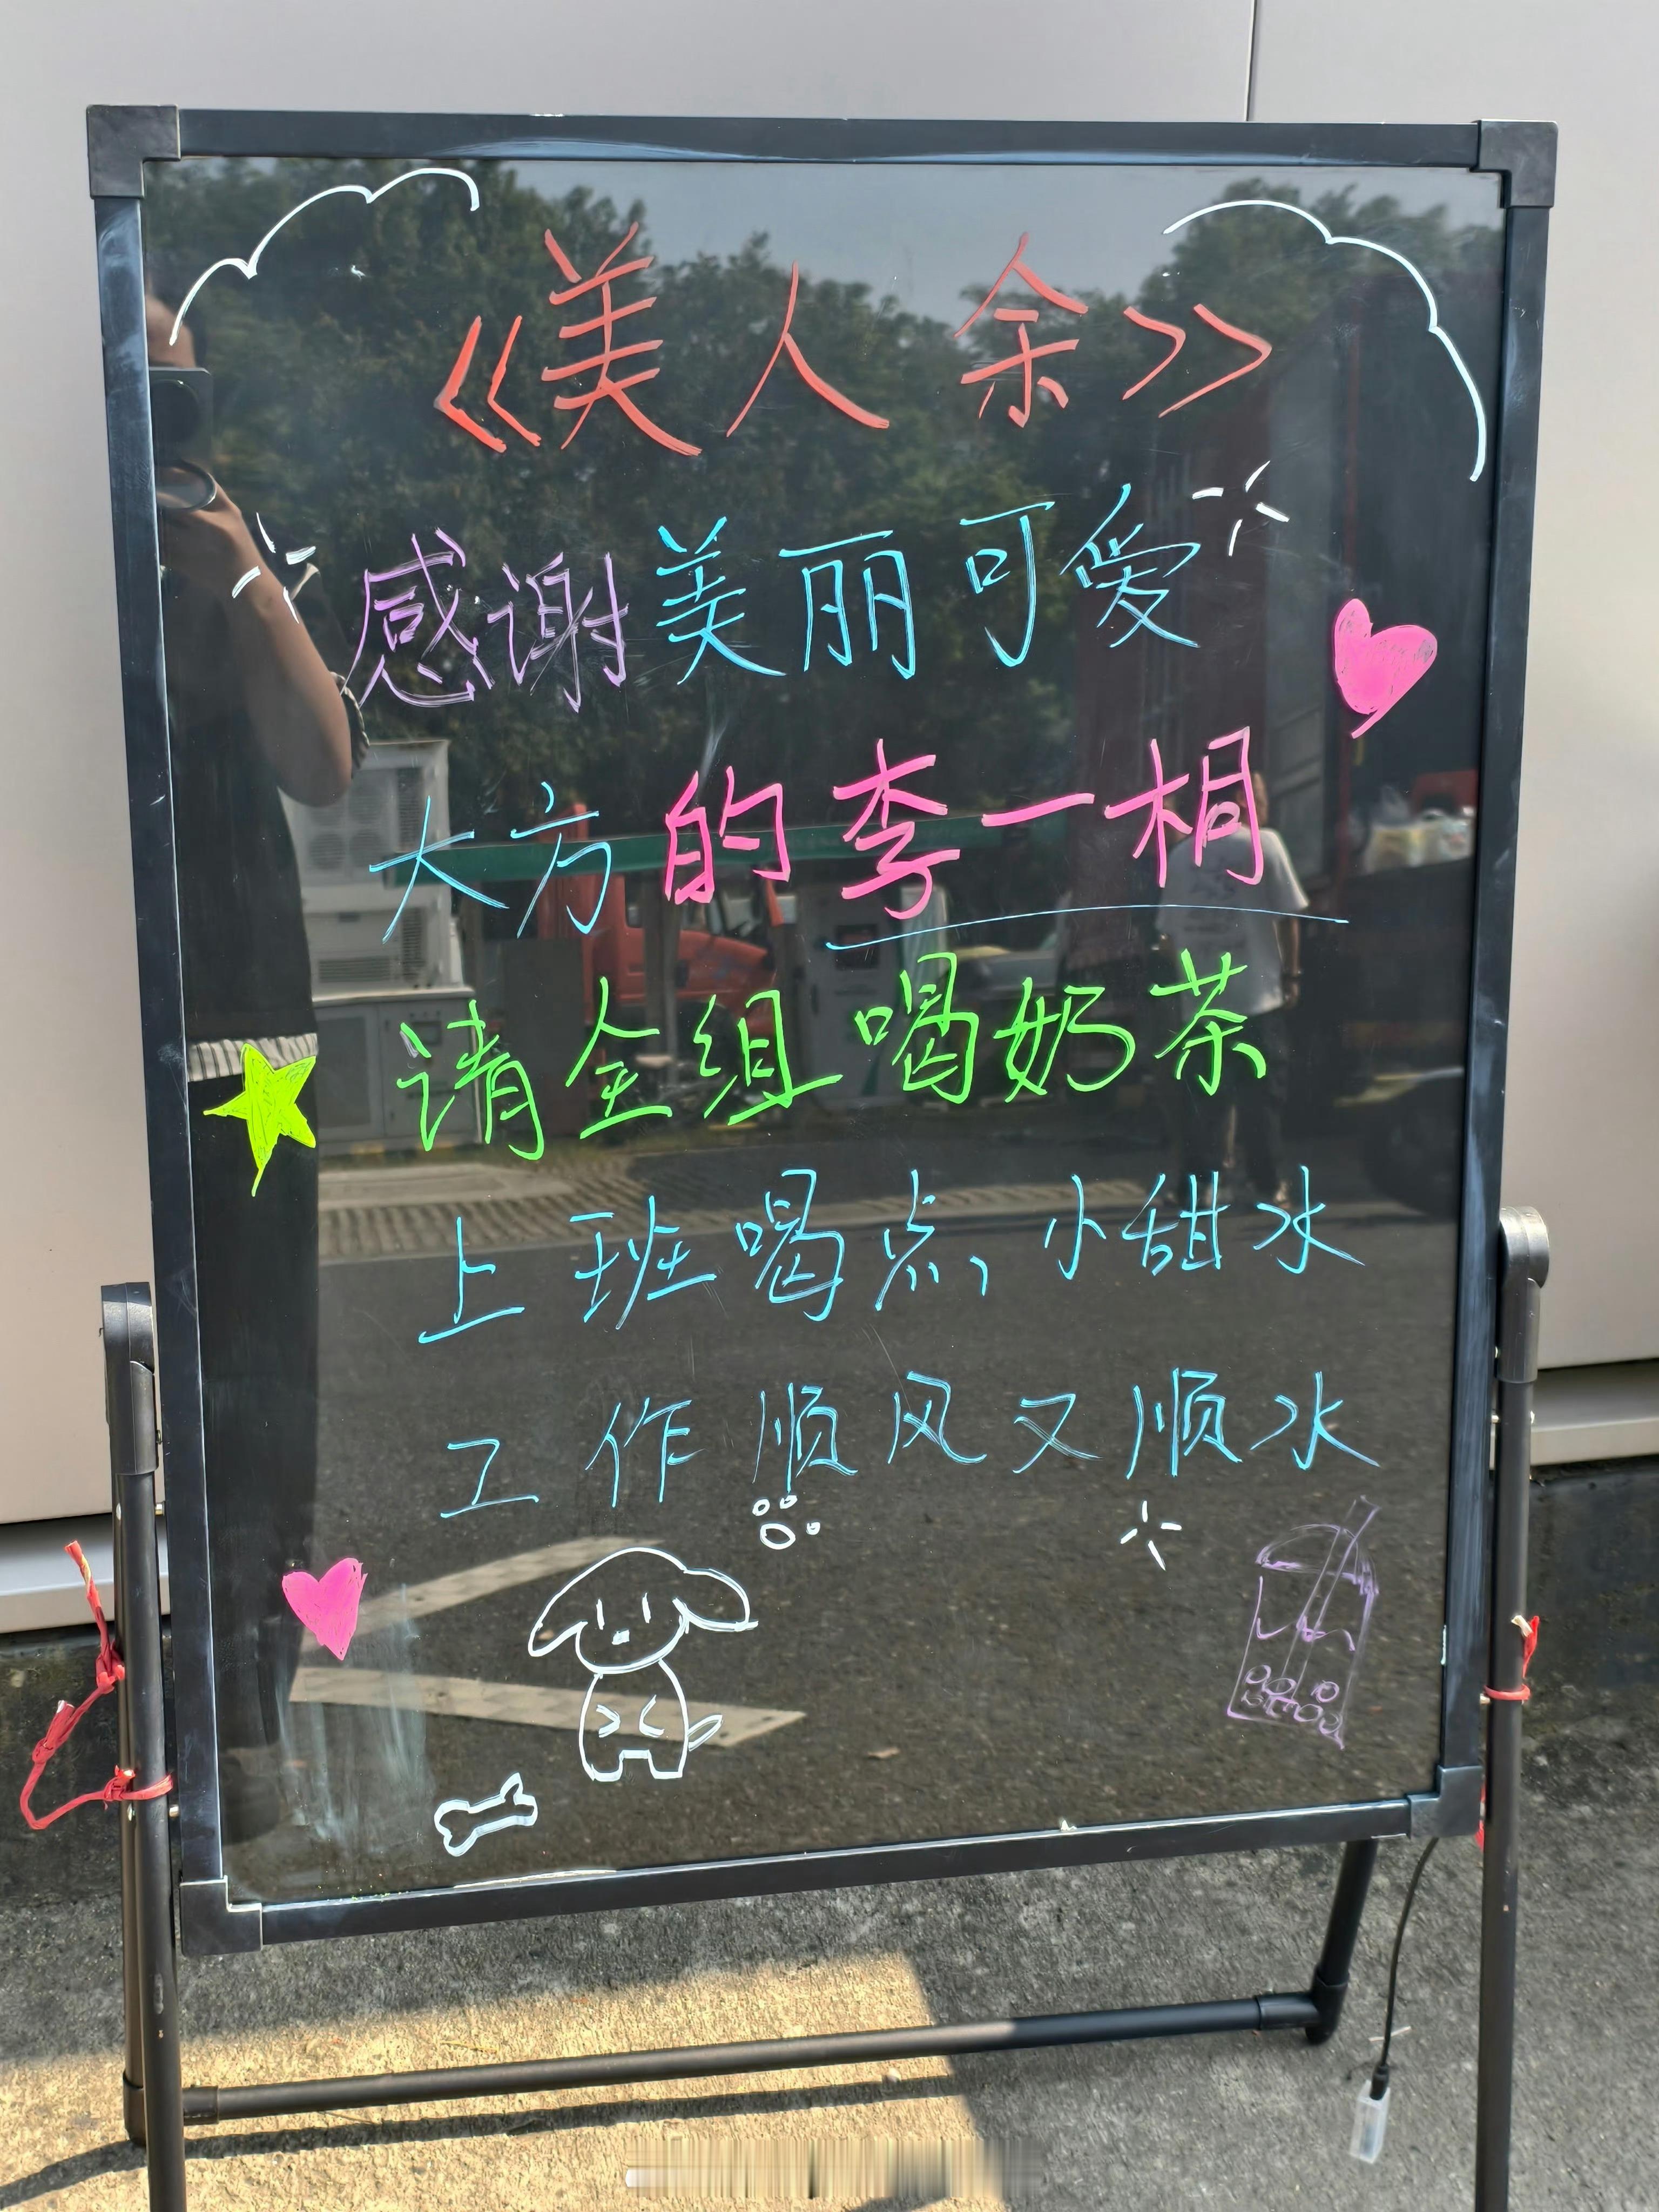 《美人余》
感谢美丽可爱
大方的李一桐
请全组喝奶茶
上班喝点小甜水
工作顺风又顺水